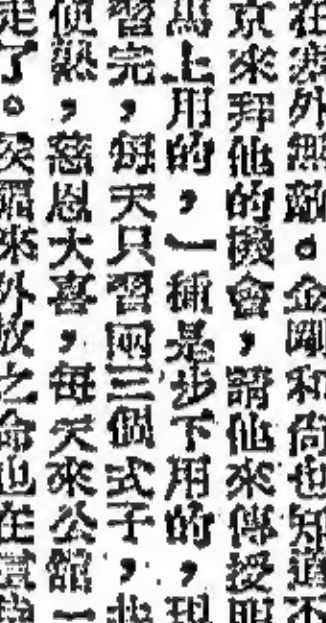 在塞外無敵。金剛和尚也知道不
京來拜他的機會，請他來傳授
馬上用的，一種是步下用的，現
習完，每天只習兩三個式子，
便熟，慈恩大喜，每天來公館一
走了。
來外放之命也在